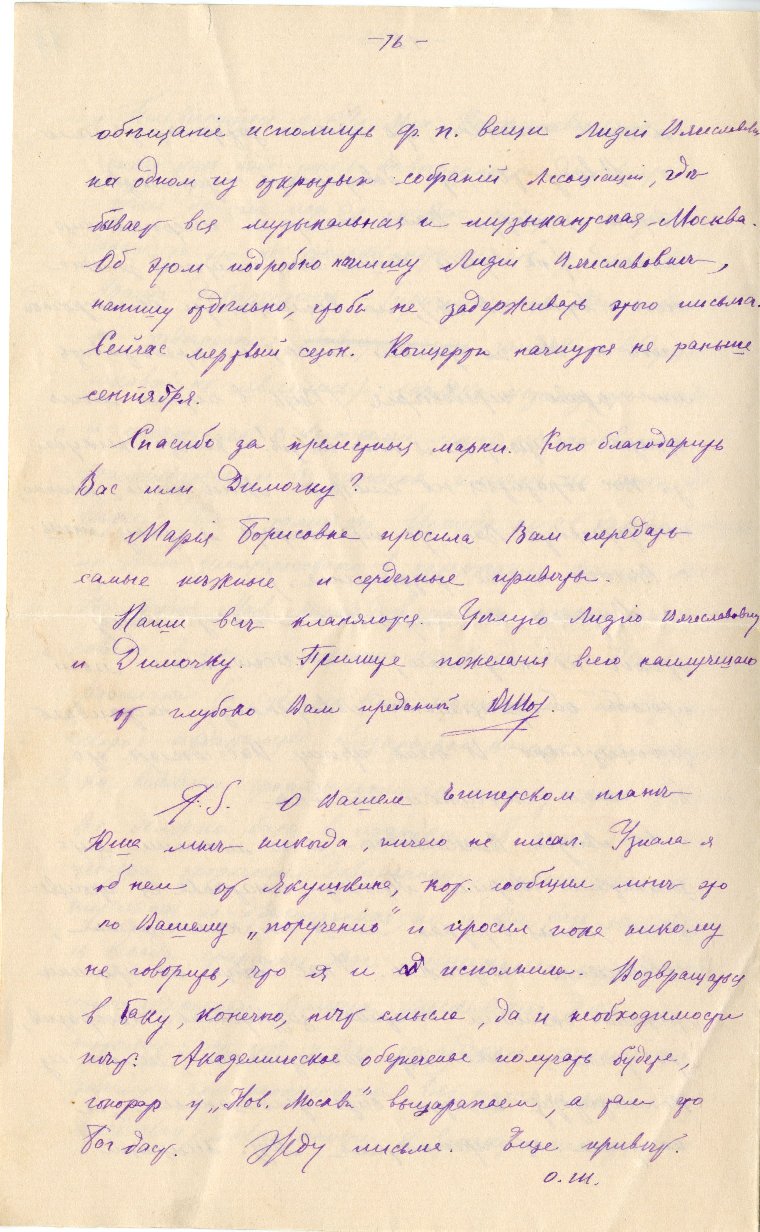 -16-
обѣщаніе исполнить ф.п. вещи Лидіи Вячеславовны
на одном из открытых собраній Ассоціаціи, гдѣ
бывает вся музыкальная и музыкантская Москва.
Об этом подробно напишу Лидіи Вячеславовнѣ,
напишу отдѣльно, чтобы не задерживать этого письма.
Сейчас мертвый сезон. Концерты начнутся не раньше
сентября.
Спасибо за прелестныя марки. Кого благодарить
Вас или Димочку?
Марія Борисовна просила Вам передать
самые нѣжные и сердечные привѣты.
Наши всѣ кланяются. Цѣлую Лидію Вячеславовну
и Димочку. Примите пожеланья всего наилучшаго
от глубоко Вам преданной ОШор.
P.S. О Вашем Египетском планѣ
Юша мнѣ никогда, ничего не писал. Узнала я
об нем от Якушкина, кот. сообщил мнѣ это
по Вашему „порученію" и просил пока никому
не говорить, что я и исполнила. Возвращаться
в Баку, конечно, нѣт смысла, да и необходимости
нѣт: Академическое обезпеченье получать будете,
гонорар у „Нов. Москвы" выцарапаем, а там что
Бог даст. Жду письма. Еще привѣт.
О.Ш.